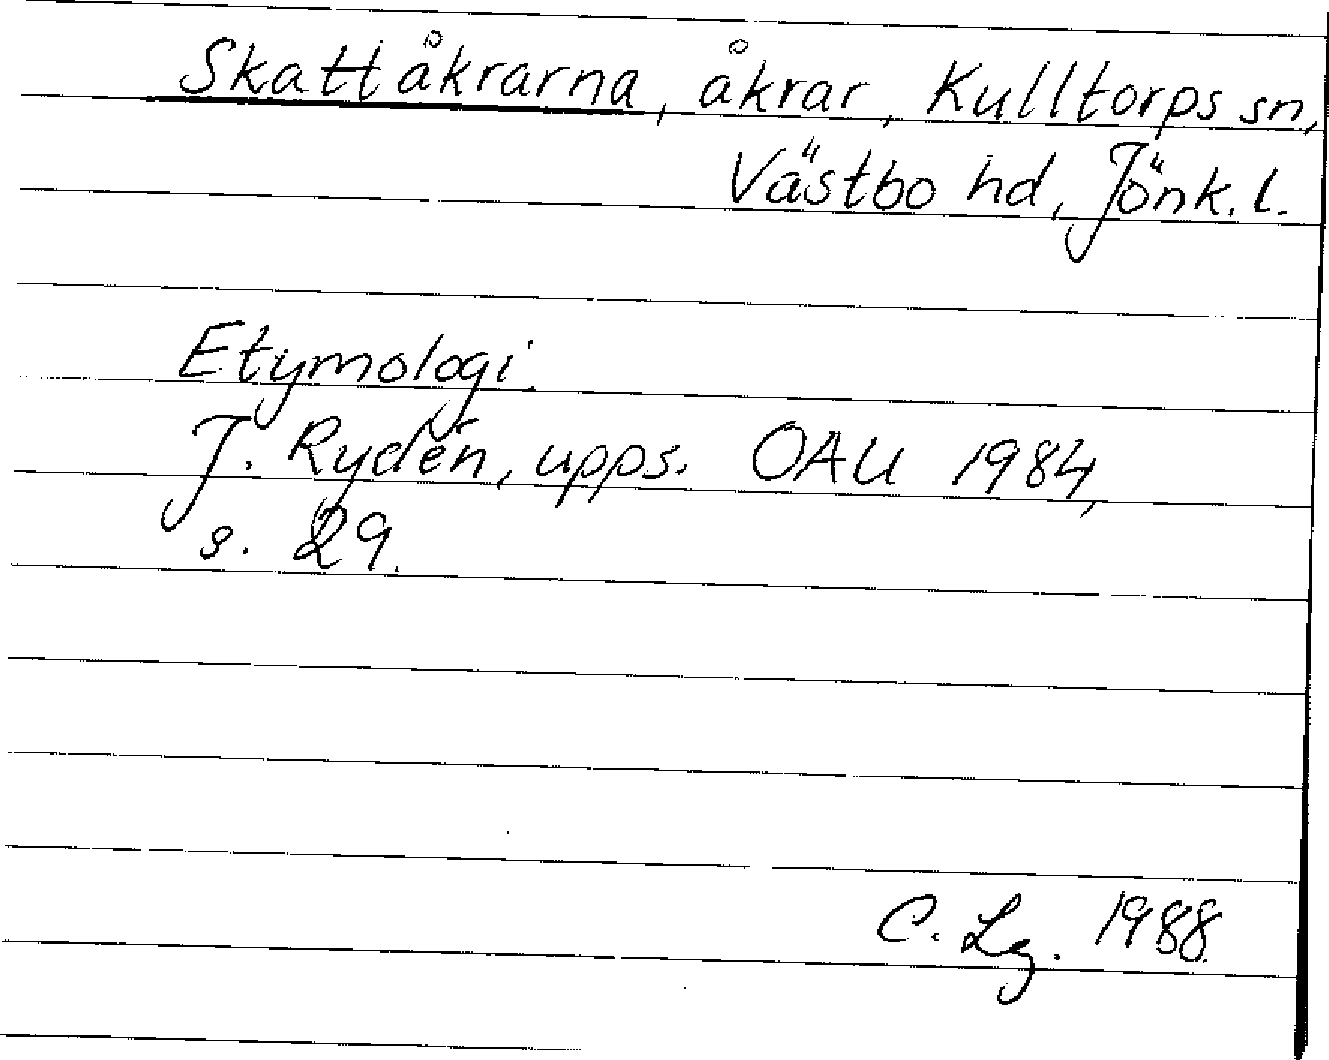 Skattåkrarna, åkrar, Kulltorps sn,
Västbo hd, Jönk. l.
Etymologi.
J. Rydén, upps. OAU 1984,
s. 29.
C. Lg. 1988.